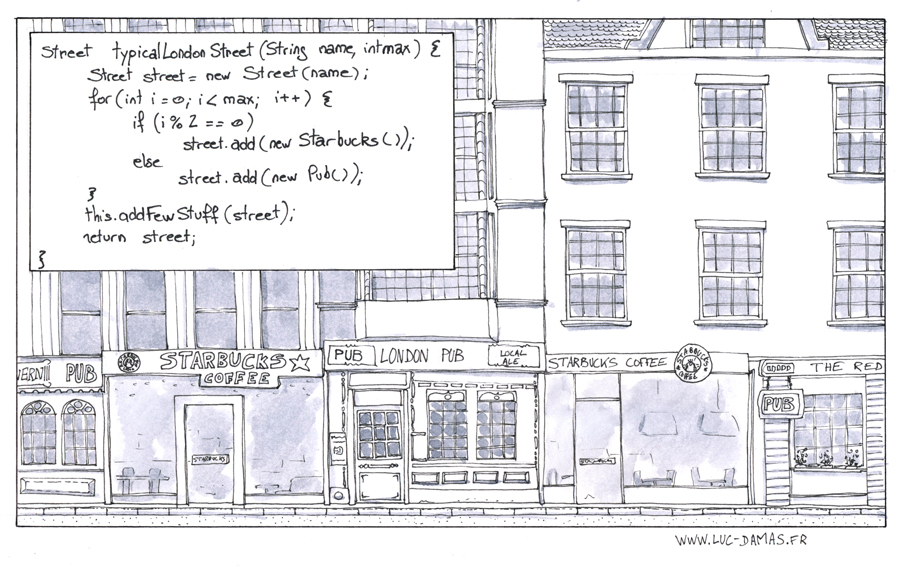 Street typicalLondonStreet (String name, int max) {
Street street = new Street (name);
for (int i = 0; i < max; i++) {
if (i % 2 == 0)
street.add (new Starbucks());
else
street.add (new Pub());
}
this.addFewStuff (street);
return street;
}
PUB
STARBUCKS
COFFEE
STARBUCKS
PUB
LONDON PUB
LOCAL
ALE
STARBUCK'S COFFEE
THE RED
PUB
WWW.LUC-DAMAS.FR